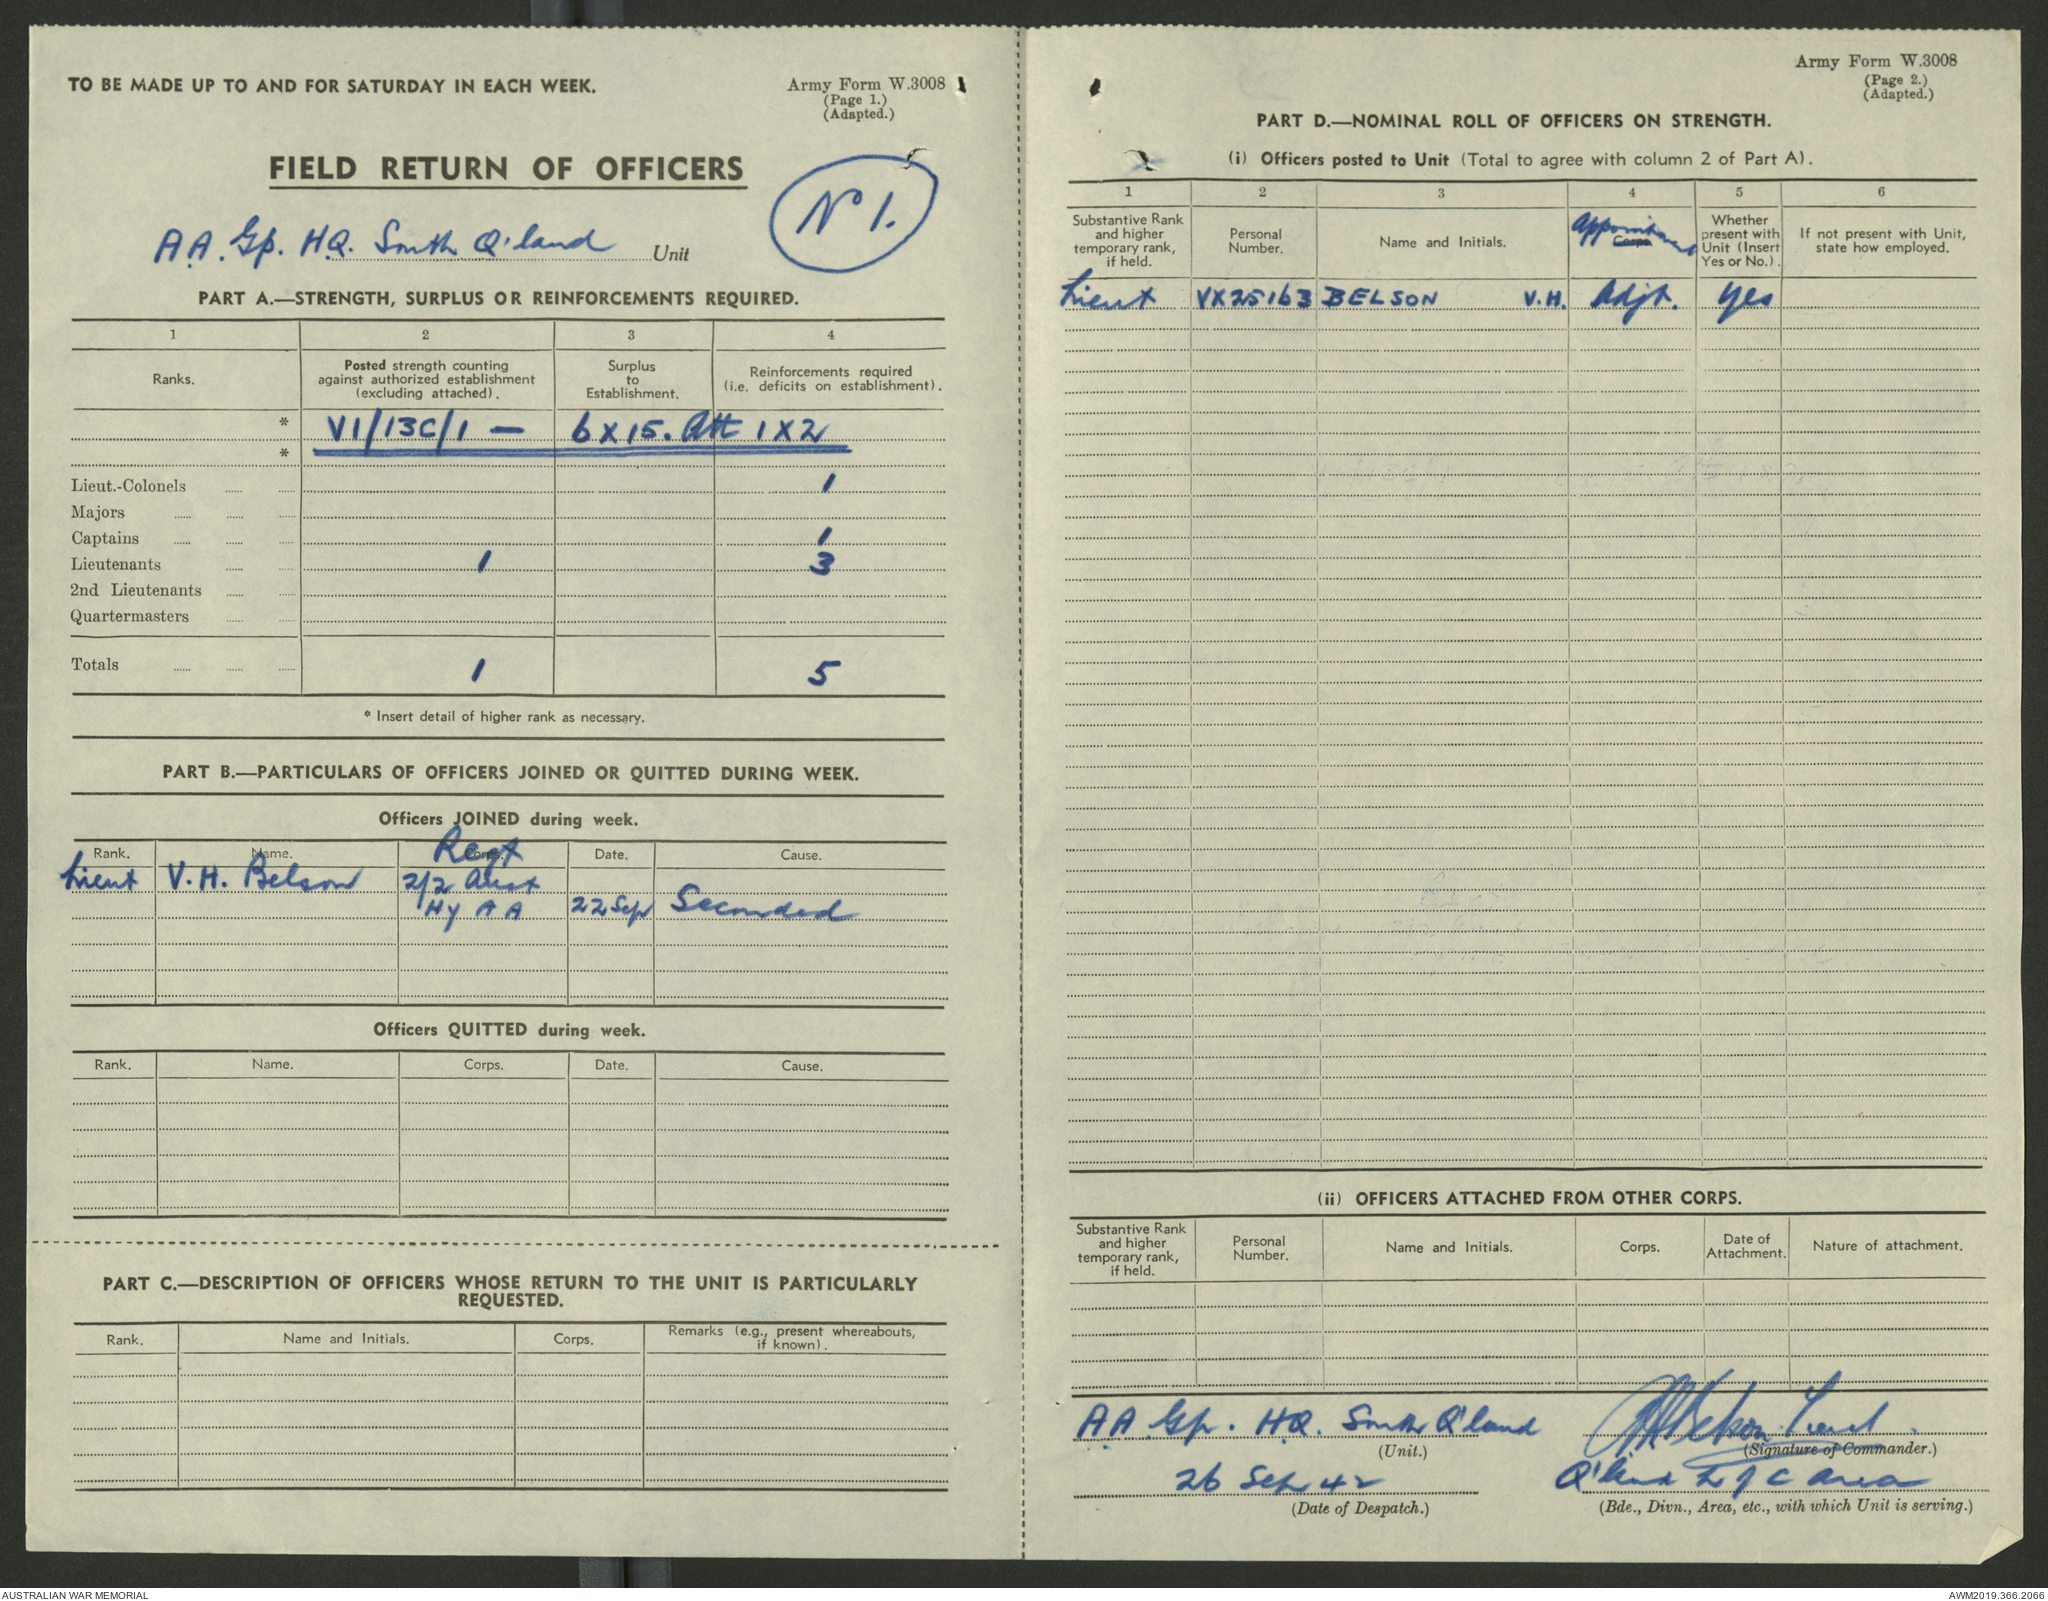 TO BE MADE UP TO AND FOR SATURDAY IN EACH WEEK.
Army Form W.3008
(Page 1.)
(Adapted.)
FIELD RETURN OF OFFICERS
No 1.
A.A. Gp. H.Q. South Q'land Unit
PART A.—STRENGTH, SURPLUS OR REINFORCEMENTS REQUIRED.
1 2 3 4
Ranks.
Posted strength counting
against authorized establishment
(excluding attached).
Surplus
to
Establishment.
Reinforcements required
(i.e. deficits on establishment).
* VI/13C/1 — 6 X 15. Att 1 X 2
*
Lieut.-Colonels 1
Majors
Captains 1
Lieutenants 1 3
2nd Lieutenants
Quartermasters
Totals 1 5
* Insert detail of higher rank as necessary.
PART B.—PARTICULARS OF OFFICERS JOINED OR QUITTED DURING WEEK.
Officers JOINED during week.
Rank. Name. Corps. Regt Date. Cause.
Lieut V.H. Belson 2/2 Aust
Hy A A 22 Sep Seconded
Officers QUITTED during week.
Rank. Name. Corps. Date. Cause.
PART C.—DESCRIPTION OF OFFICERS WHOSE RETURN TO THE UNIT IS PARTICULARLY
REQUESTED.
Rank. Name and Initials. Corps.
Remarks (e.g., present whereabouts,
if known).
Army Form W.3008
(Page 2.)
(Adapted.)
PART D.—NOMINAL ROLL OF OFFICERS ON STRENGTH.
(i) Officers posted to Unit (Total to agree with column 2 of Part A).
1 2 3 4 5 6
Substantive Rank
and higher
temporary rank,
if held.
Personal
Number.
Name and Initials.
Appointment
Corps
Whether
present with
Unit (Insert
Yes or No.).
If not present with Unit,
state how employed.
Lieut VX25163 BELSON V.H. Adjt. Yes
(ii) OFFICERS ATTACHED FROM OTHER CORPS.
Substantive Rank
and higher
temporary rank,
if held.
Personal
Number.
Name and Initials.
Corps.
Date of
Attachment.
Nature of attachment.
A.A. Gp. H.Q. South Q'land
(Unit.)
VHBelson Lieut.
(Signature of Commander.)
26 Sep 42
(Date of Despatch.)
Q'land L of C Area
(Bde., Divn., Area, etc., with which Unit is serving.)
AUSTRALIAN WAR MEMORIAL
AWM2019.366.2066